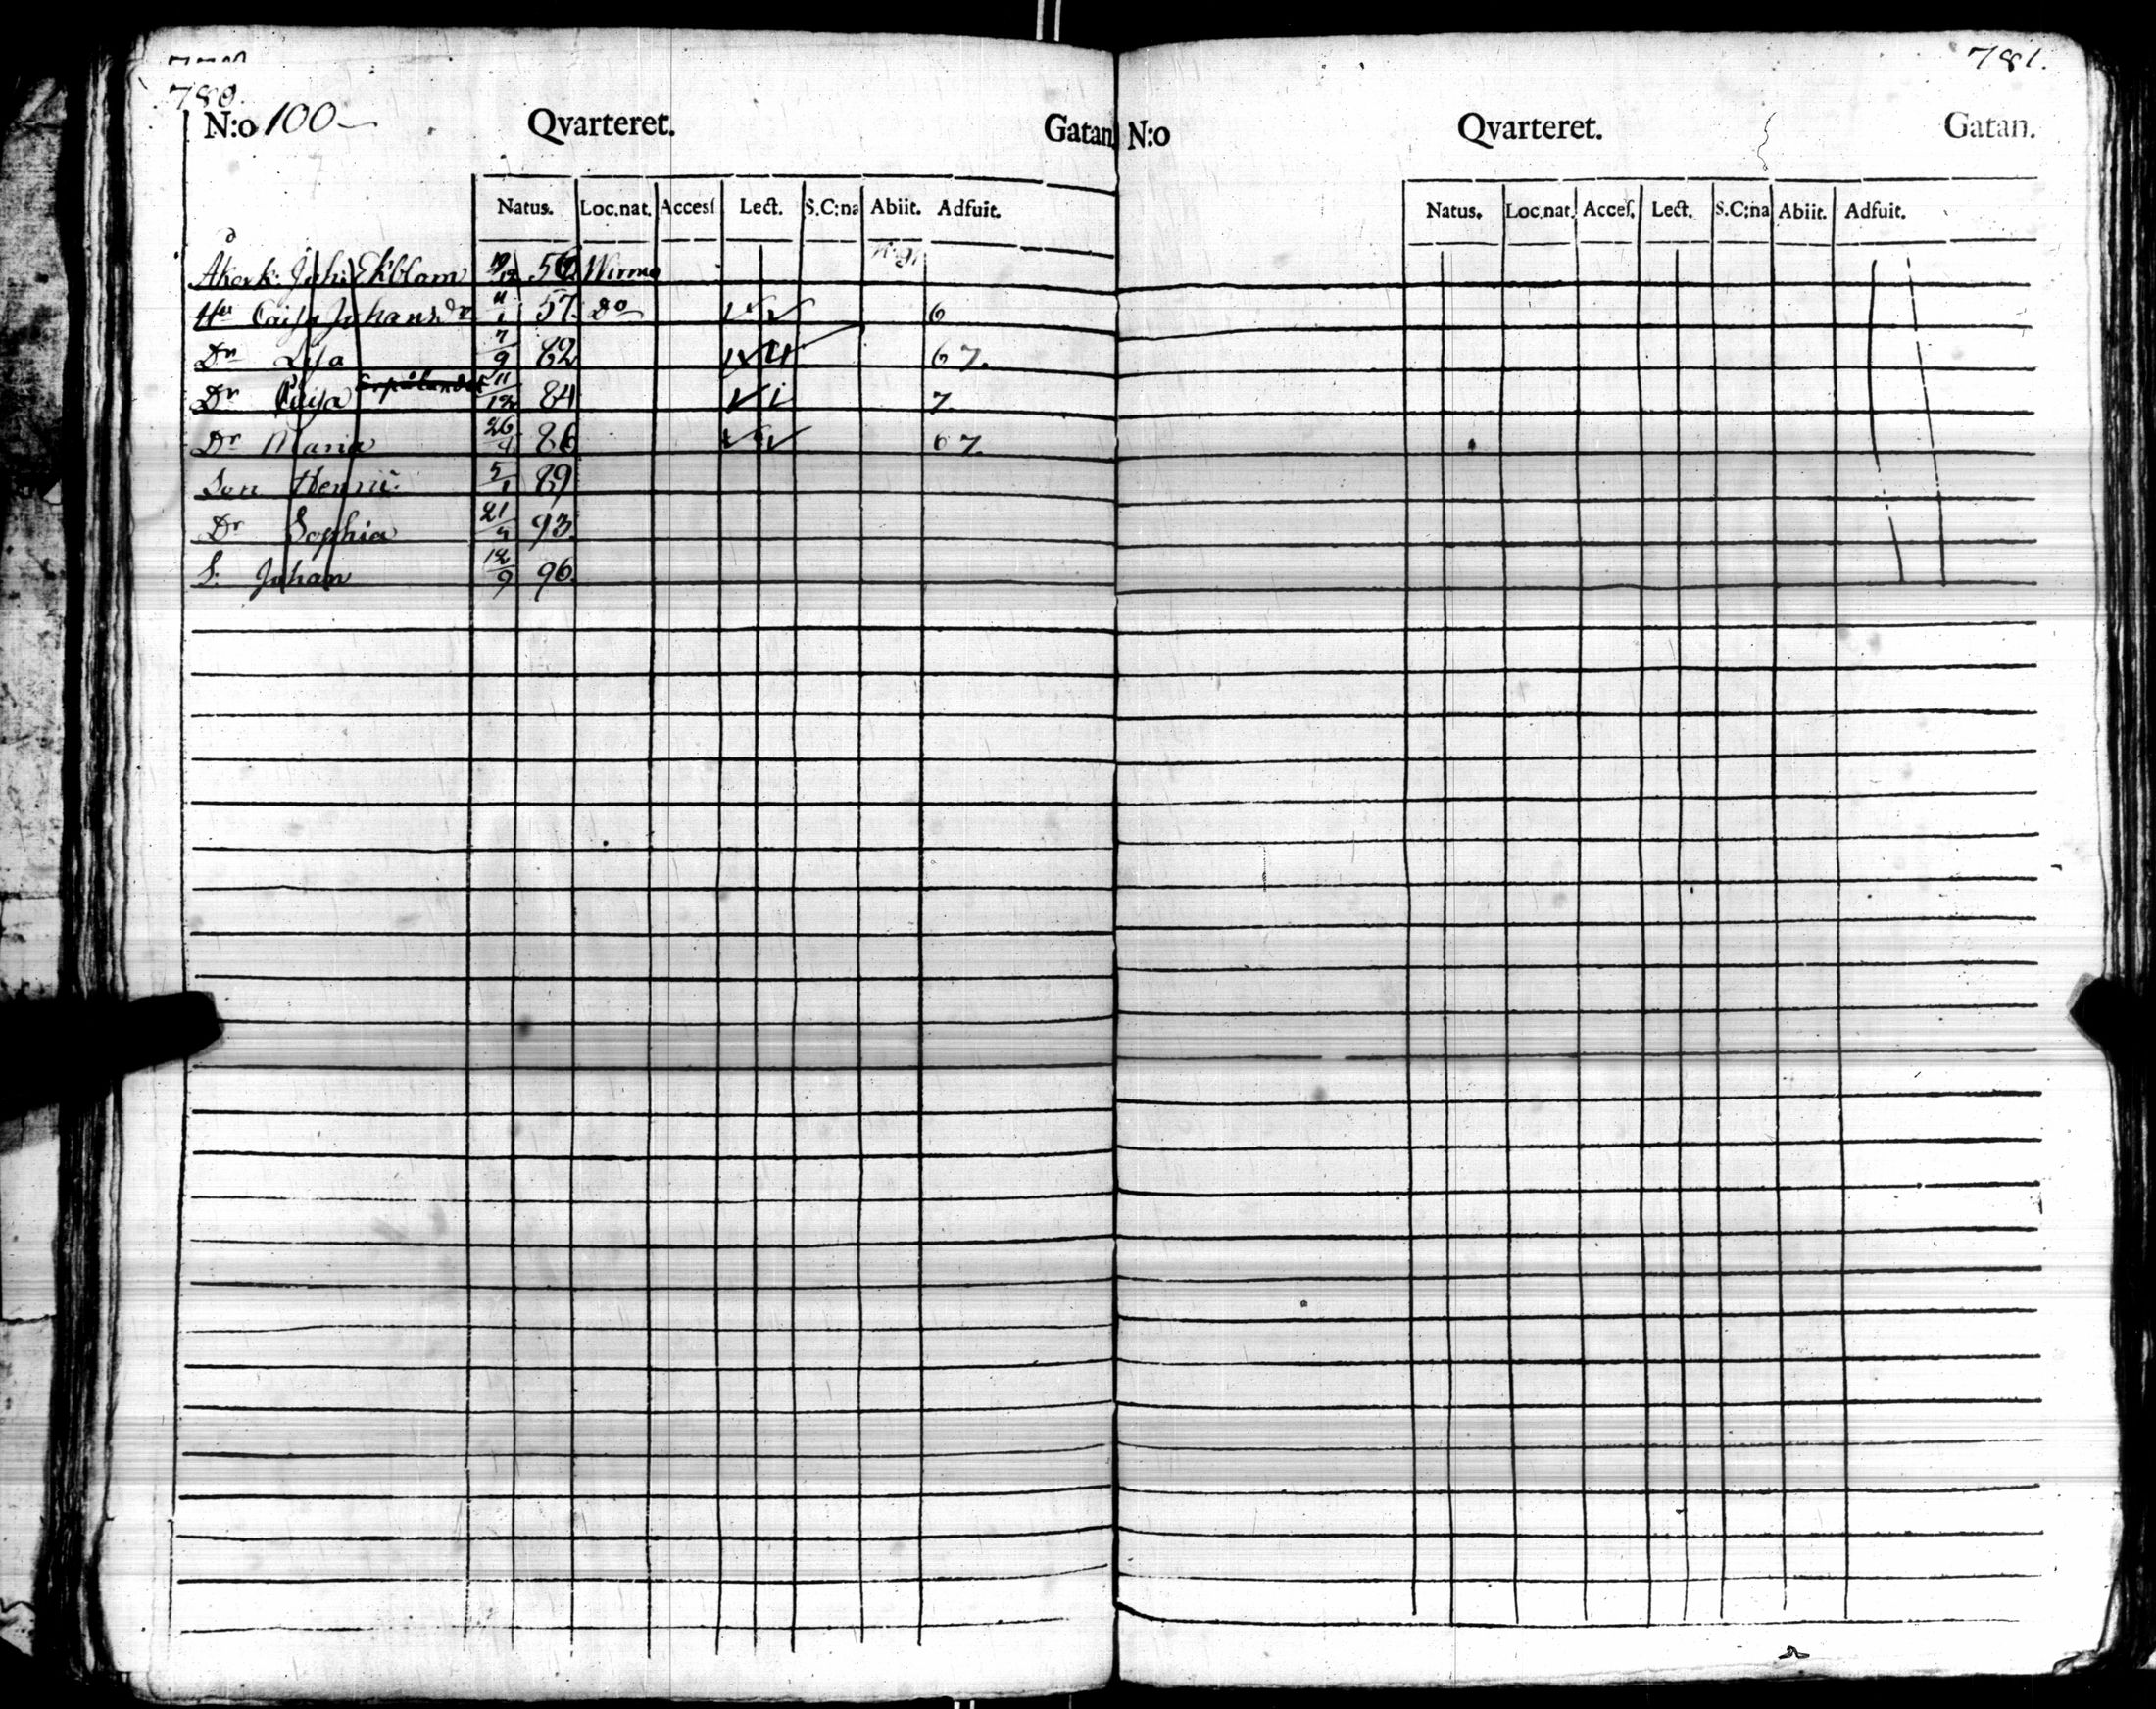 780.
N:o 100 Qvarteret. Gatan
Natus. Loc.nat. Accesſ. Lect. S.C:na Abiit. Adfuit.
Åkerk: Joh: Ekblom 12 56 Wirmo
Hu Caisa Johansdr 11/1 57 do 6
Dr Lisa 7/9 82 6 7.
Dr Caisa 11/12 84 7
Dr Maria 26/4 86 6 7.
Son Henric 5/1 89
Dr Sophia 21/4 93
S. Johan 12/9 96
781.
N:o Qvarteret. Gatan.
Natus. Loc.nat. Acceſ. Lect. S.C:na Abiit. Adfuit.